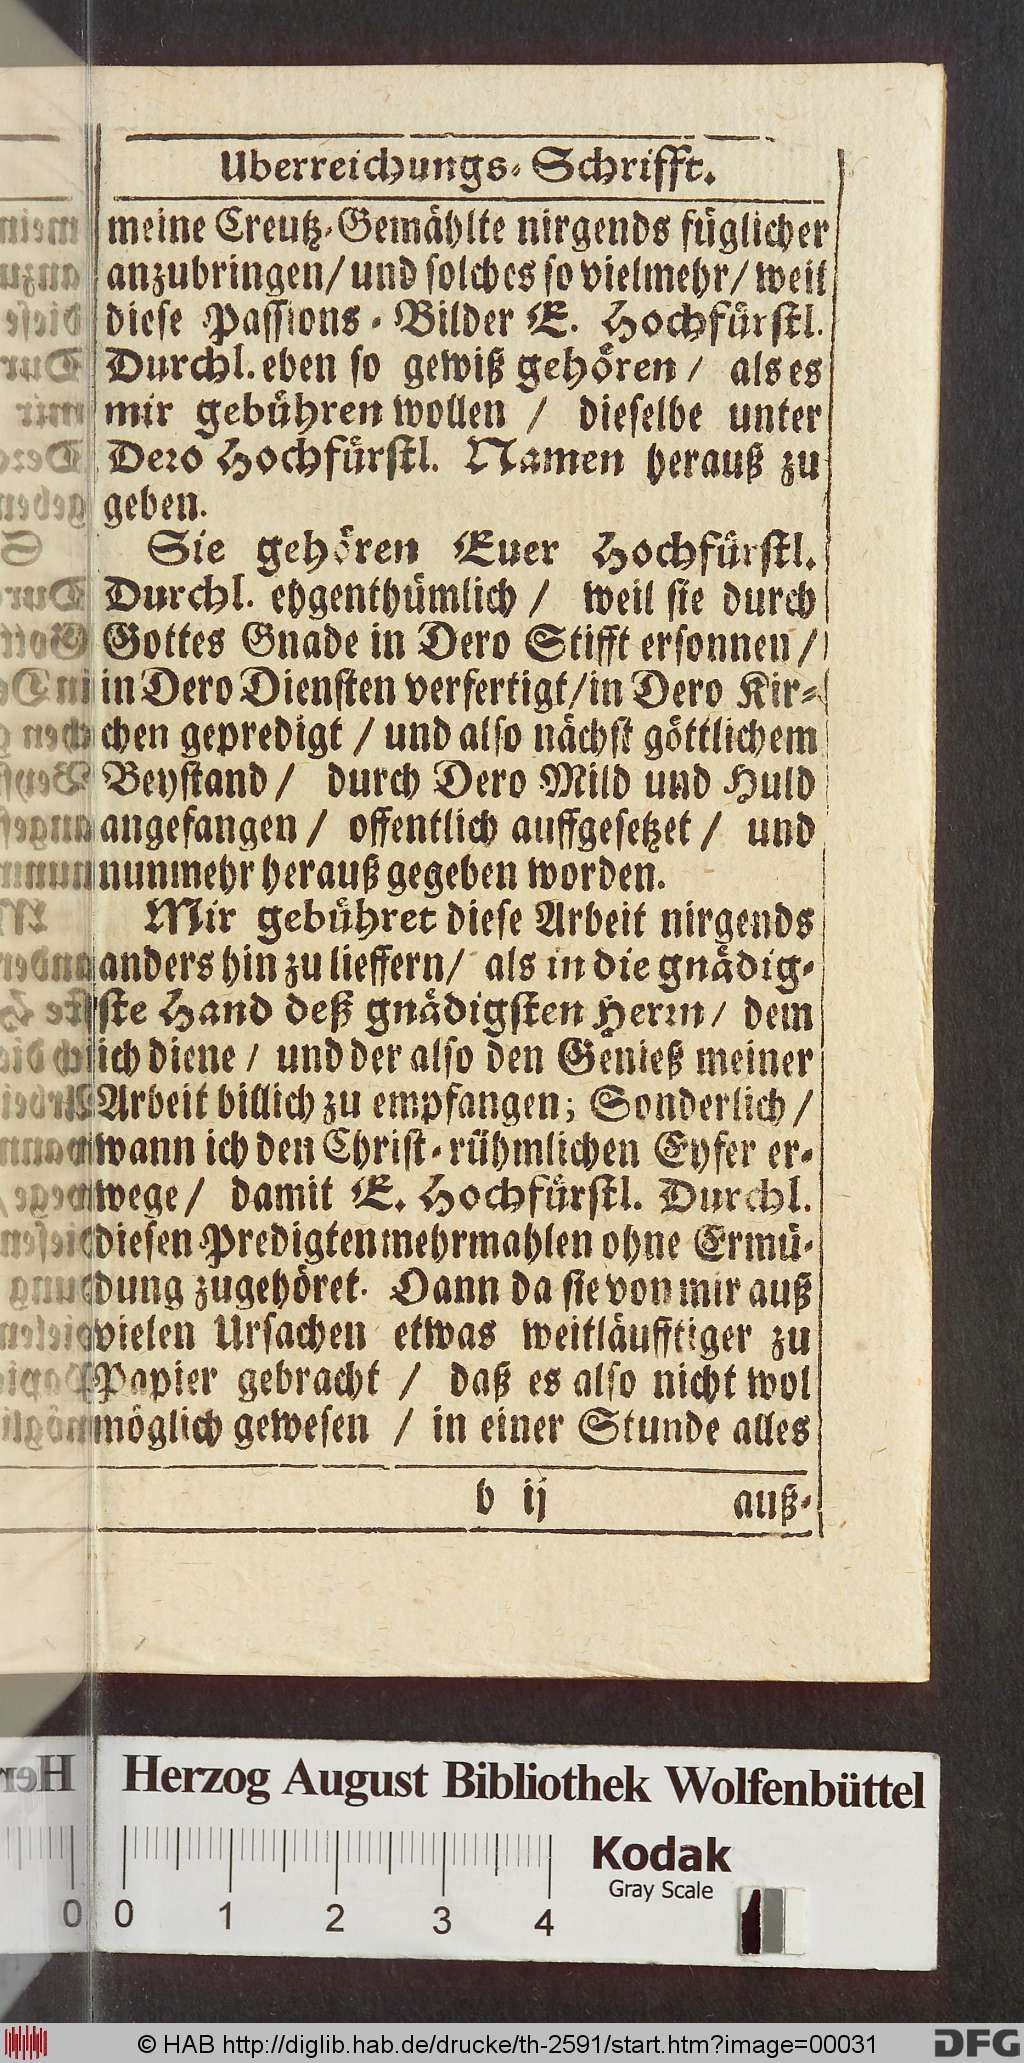 Uberreichungs-Schrifft.
meine Creutz-Gemählte nirgends füglicher
anzubringen/ und solches so vielmehr/ weil
diese Passions-Bilder E. Hochfürstl.
Durchl. eben so gewiß gehören/ als es
mir gebühren wollen / dieselbe unter
Dero Hochfürstl. Namen herauß zu
geben.
Sie gehören Euer Hochfürstl.
Durchl. eygenthümlich / weil sie durch
Gottes Gnade in Dero Stifft ersonnen /
in Dero Diensten verfertigt/in Dero Kir-
chen gepredigt / und also nächst göttlichem
Beystand / durch Dero Mild und Huld
angefangen / offentlich auffgesetzet / und
nunmehr herauß gegeben worden.
Mir gebühret diese Arbeit nirgends
anders hin zu lieffern/ als in die gnädig-
ste Hand deß gnädigsten Herrn/ dem
ich diene / und der also den Genieß meiner
Arbeit billich zu empfangen; Sonderlich /
wann ich den Christ-rühmlichen Eyfer er-
wege / damit E. Hochfürstl. Durchl.
diesen Predigten mehrmahlen ohne Ermü-
dung zugehöret. Dann da sie von mir auß
vielen Ursachen etwas weitläufftiger zu
Papier gebracht / daß es also nicht wol
möglich gewesen / in einer Stunde alles
b ij auß-
Herzog August Bibliothek Wolfenbüttel
Kodak
Gray Scale
0 0 1 2 3 4
© HAB http://diglib.hab.de/drucke/th-2591/start.htm?image=00031
DFG